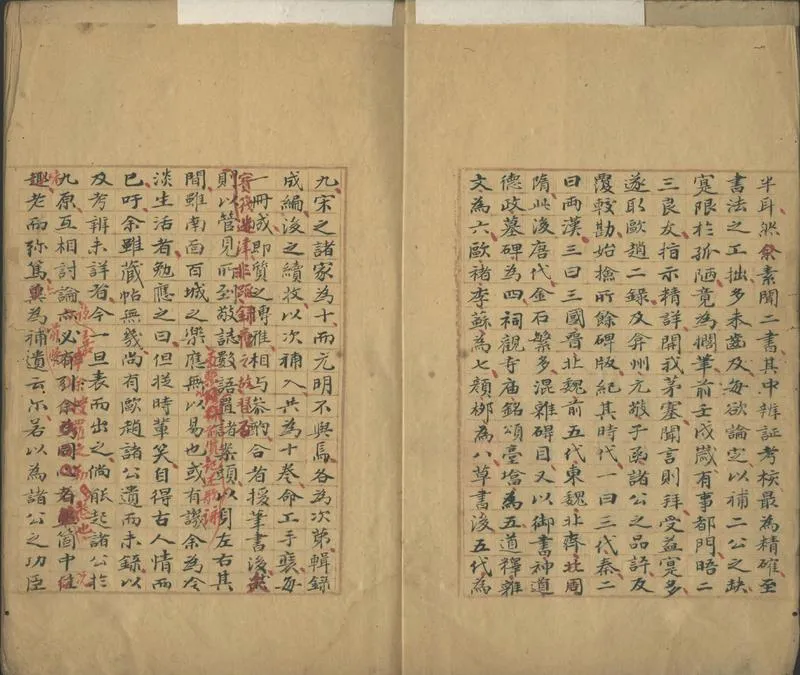 半耳然余素閱二書其中辨証考核最為精確至
書法之工拙多未齒及每欲論定以補二公之缺
寔限於孤陋竟為擱筆前壬戌歲有事都門晤二
三良友指示精詳開我茅塞聞言則拜受益寔多
遂取歐趙二錄及弇州元敬子函諸公之品評及
覆較勘始撿所餘碑版紀其時代一曰三代秦二
曰兩漢三曰三國晉北魏前五代東魏北齊北周
隋此後唐代金石繁多混雜碍目又以御書神道
德政墓碑為四祠觀寺庙銘頌臺塔為五道釋雜
文為六歐褚李蘇為七顏柳為八草書後五代為
九宋之諸家為十而元明不與焉各為次第輯錄
成編後之續收以次補入共為十卷命工手裝每
一冊成即質之博雅相与叅酌合者援筆書後
則以管見所到敬誌數語置諸案頭以周左右其
間雖南面百城之樂應無以易也或有譏余為今
淡生活者勉應之曰但從時輩笑自得古人情而
已吁余雖藏帖無幾尚有歐趙諸公遺而未錄以
及考辨未詳者今一旦表而出之倘能起諸公於
九原互相討論必有引余為同心者箇中佳
趣老而弥篤為補遺云尔若以為諸公之功臣